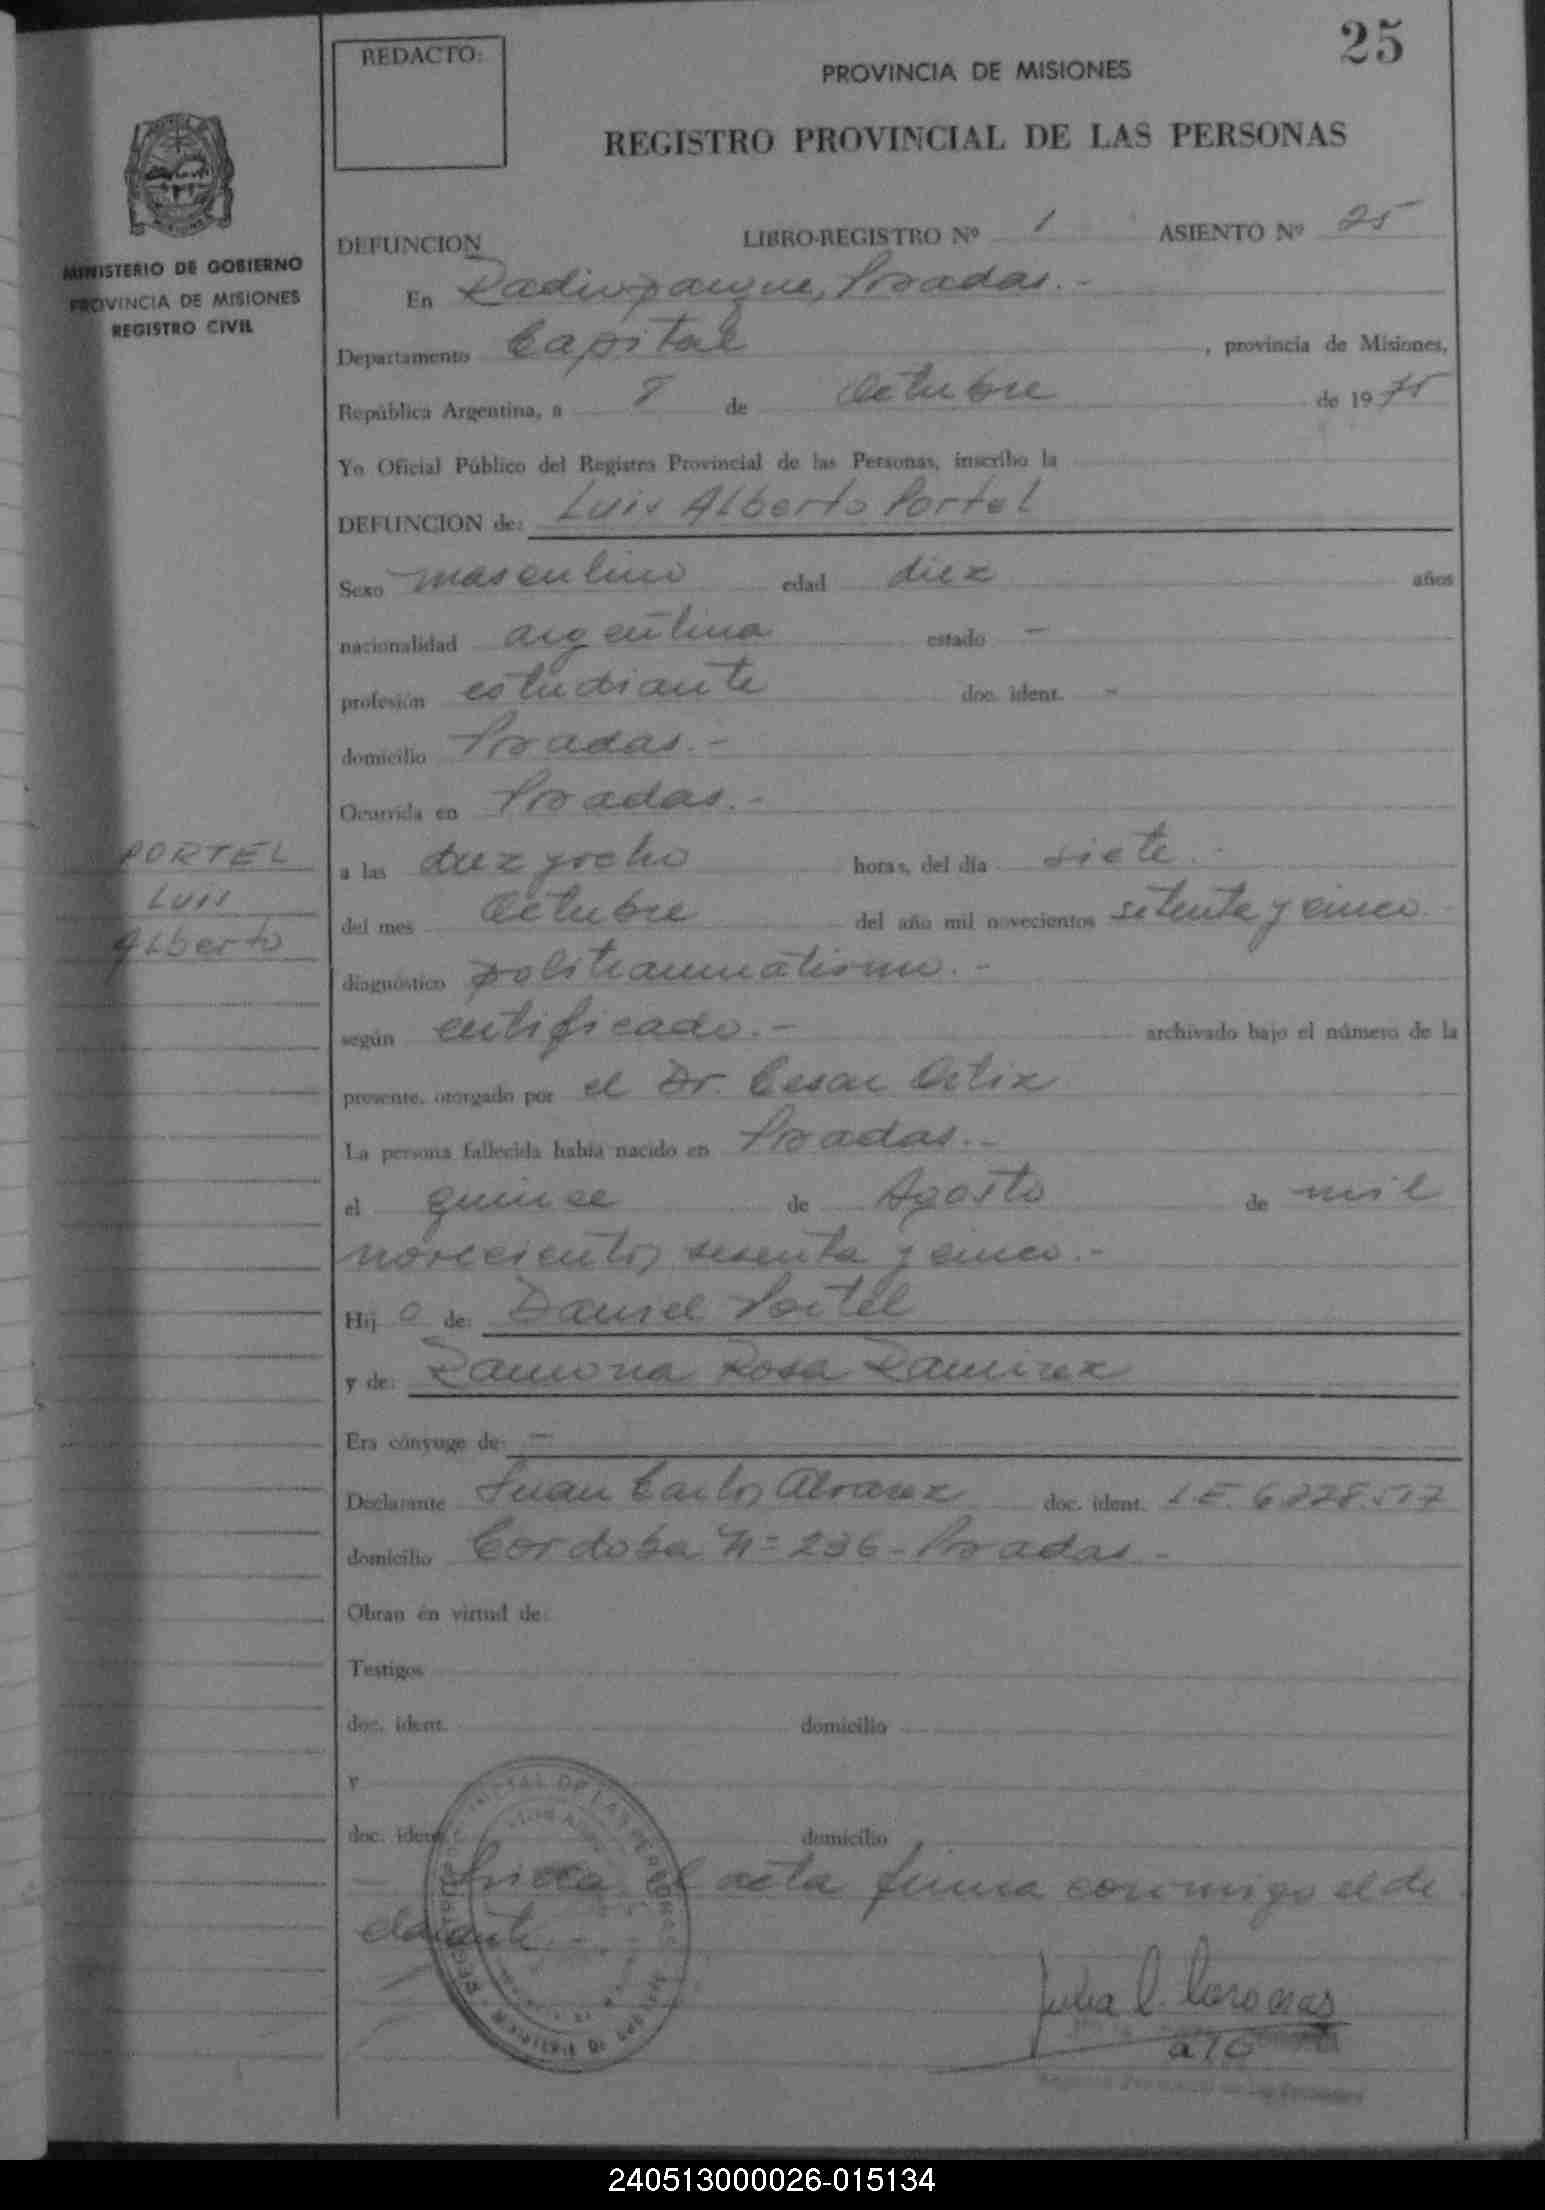 25
REDACTO:
PROVINCIA DE MISIONES
REGISTRO PROVINCIAL DE LAS PERSONAS
MINISTERIO DE GOBIERNO
PROVINCIA DE MISIONES
REGISTRO CIVIL
DEFUNCION LIBRO-REGISTRO Nº 1 ASIENTO Nº 25
En Radioparque, Posadas.-
Departamento Capital, provincia de Misiones,
República Argentina, a 8 de Octubre de 1975
Yo Oficial Público del Registro Provincial de las Personas, inscribo la
DEFUNCION de: Luis Alberto Portel
Sexo masculino edad diez años
nacionalidad argentina estado -
profesión estudiante doc. ident. -
domicilio Posadas.-
Ocurrida en Posadas.-
PORTEL
Luis
Alberto
a las diez y ocho horas, del día siete.-
del mes Octubre del año mil novecientos setenta y cinco.-
diagnóstico politraumatismo.-
según certificado.- archivado bajo el número de la
presente, otorgado por el Dr. Cesar Ortiz
La persona fallecida había nacido en Posadas.-
el quince de Agosto de mil
novecientos sesenta y cinco.-
Hij o de: Daniel Portel
y de: Ramona Rosa Ramirez
Era cónyuge de: -
Declarante Juan Carlos Alvarez doc. ident. L.E.
domicilio Cordoba Nº 236 - Posadas -
Obran en virtud de:
Testigos
doc. ident. domicilio
y
doc. ident. domicilio
el acta firma conmigo el de
clarante.-
Julia
240513000026-015134